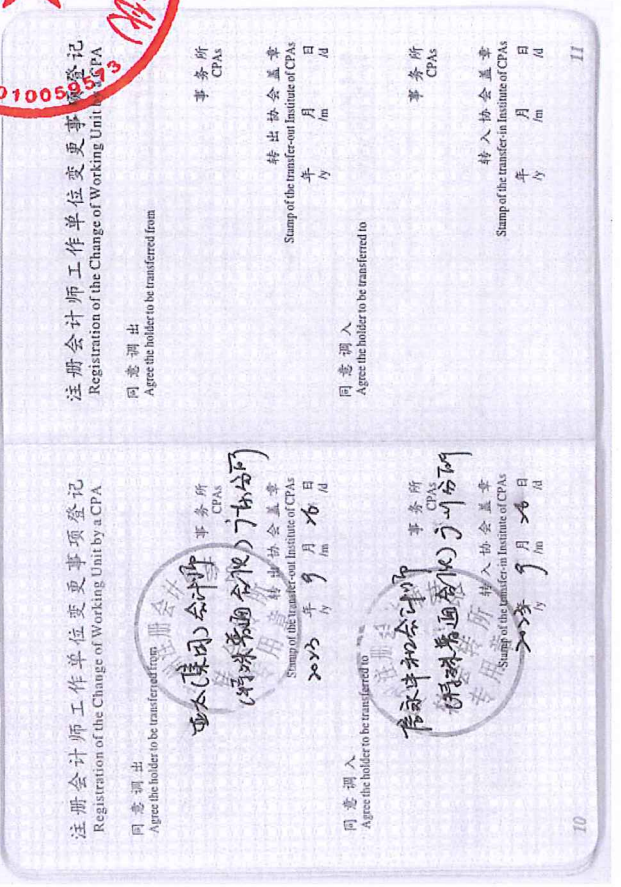 注册会计师工作单位变更事项登记
Registration of the Change of Working Unit by a CPA
同意调出
Agree the holder to be transferred from
亚太(集团)会计师 事务所
CPAs
(特殊普通合伙)广东分所
转出协会盖章
Stamp of the transfer-out Institute of CPAs
2023 年 9 月 26 日
/y /m /d
同意调入
Agree the holder to be transferred to
信永中和会计师 事务所
CPAs
(特殊普通合伙)广州分所
转入协会盖章
Stamp of the transfer-in Institute of CPAs
2023 年 9 月 26 日
/y /m /d
转所
专用章
10
注册会计师工作单位变更事项登记
Registration of the Change of Working Unit by a CPA
同意调出
Agree the holder to be transferred from
事务所
CPAs
转出协会盖章
Stamp of the transfer-out Institute of CPAs
年 月 日
/y /m /d
同意调入
Agree the holder to be transferred to
事务所
CPAs
转入协会盖章
Stamp of the transfer-in Institute of CPAs
年 月 日
/y /m /d
11